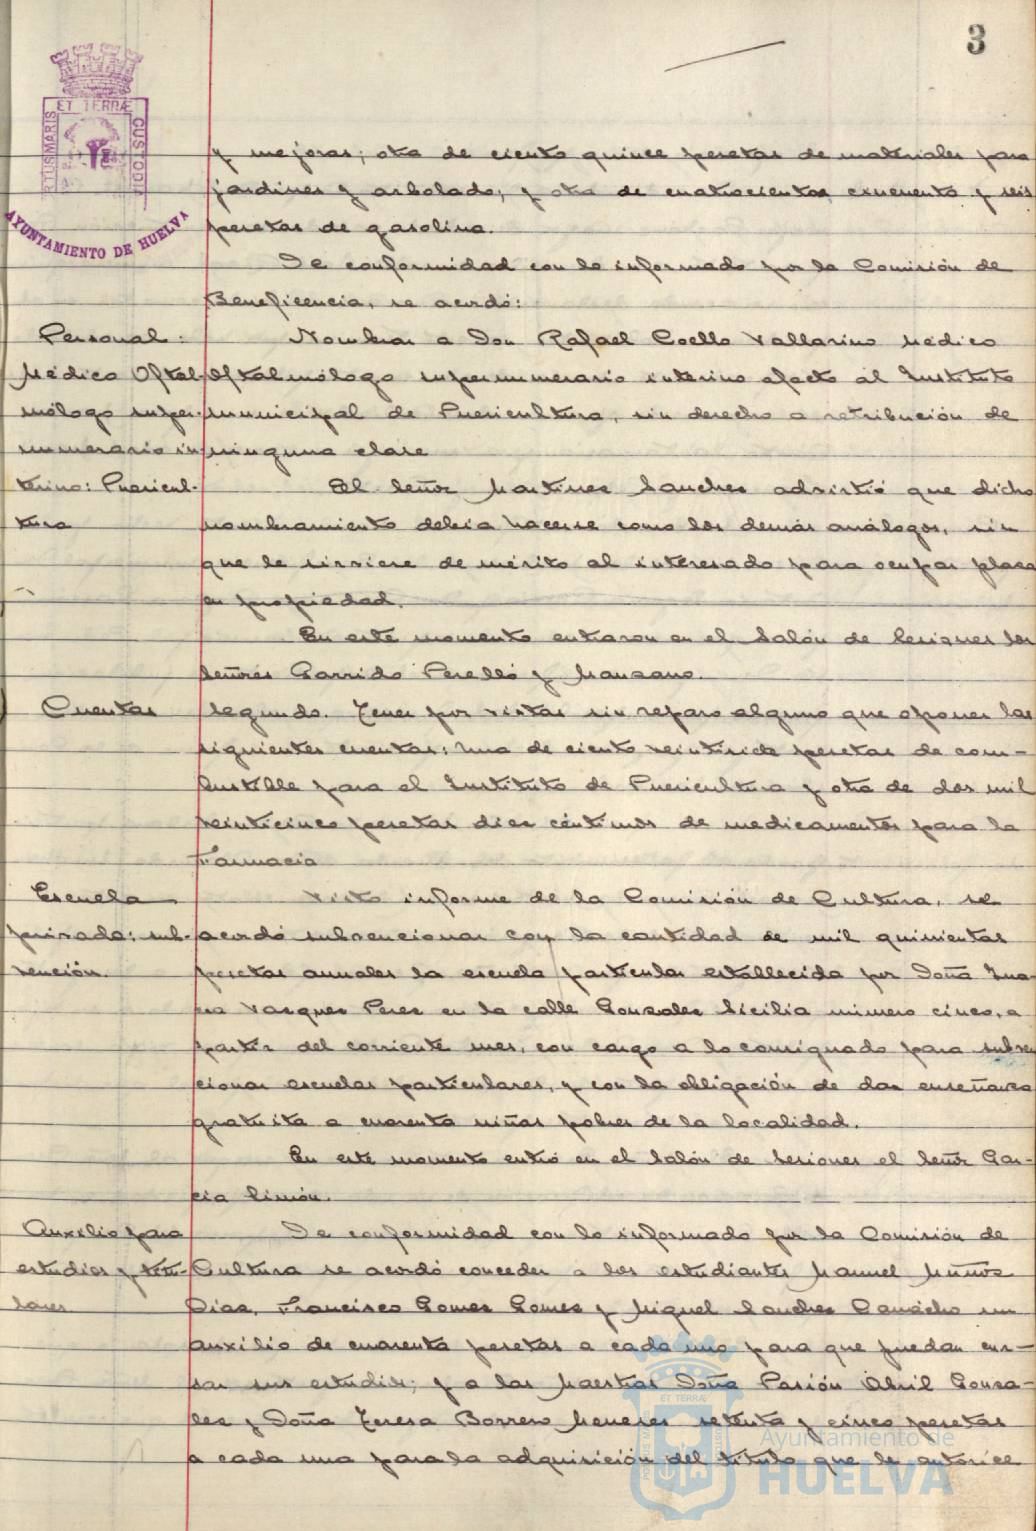 3
ET TERRÆ
CUSTODIA
AYUNTAMIENTO DE HUELVA
y mejoras; otra de ciento quince pesetas de materiales para
jardines y arbolado; y otra de cuatrocientas cincuenta y seis
pesetas de gasolina.
De conformidad con lo informado por la Comisión de
Beneficencia, se acordó:
Personal:
Médico Oftal-
mólogo super-
numerario in-
terino: Puericul-
tura
Nombrar a Don Rafael Coello Vallarino Médico
Oftalmólogo supernumerario interino afecto al Instituto
municipal de Puericultura, sin derecho a retribución de
ninguna clase
El Señor Martinez Sanchez advirtió que dicho
nombramiento debia hacerse como los demás análogos, sin
que le sirviere de mérito al interesado para ocupar plaza
en propiedad.
En este momento entraron en el Salón de Sesiones los
Señores Garrido Perelló y Manzano.
Cuentas
Segundo. Tener por vistas sin reparo alguno que oponer las
siguientes cuentas: Una de ciento veintisiete pesetas de com-
bustible para el Instituto de Puericultura y otra de dos mil
veinticinco pesetas diez céntimos de medicamentos para la
Farmacia
Escuela
privada: sub-
vención.
Visto informe de la Comisión de Cultura, se
acordó subvencionar con la cantidad de mil quinientas
pesetas anuales la escuela particular establecida por Doña Jua-
na Vazquez Perez en la calle Gonzalez Sicilia número cinco, a
partir del corriente mes, con cargo a lo consignado para subven
cionar escuelas particulares, y con la obligación de dar enseñanza
gratuita a cuarenta niñas pobres de la localidad.
En este momento entró en el Salón de Sesiones el Señor Gar-
cia Limón.
Auxilio para
estudios y titu-
lares
De conformidad con lo informado por la Comisión de
Cultura se acordó conceder a los estudiantes Manuel Muñoz
Diaz, Francisco Gomez Gomez y Miguel Sanchez Camacho un
auxilio de cuarenta pesetas a cada uno para que puedan cur-
sar sus estudios; y a las Maestras Doña Pasión Abril Gonza-
lez y Doña Teresa Borrero Meneses setenta y cinco pesetas
a cada una para la adquisición del título que le autorice
Ayuntamiento de
HUELVA